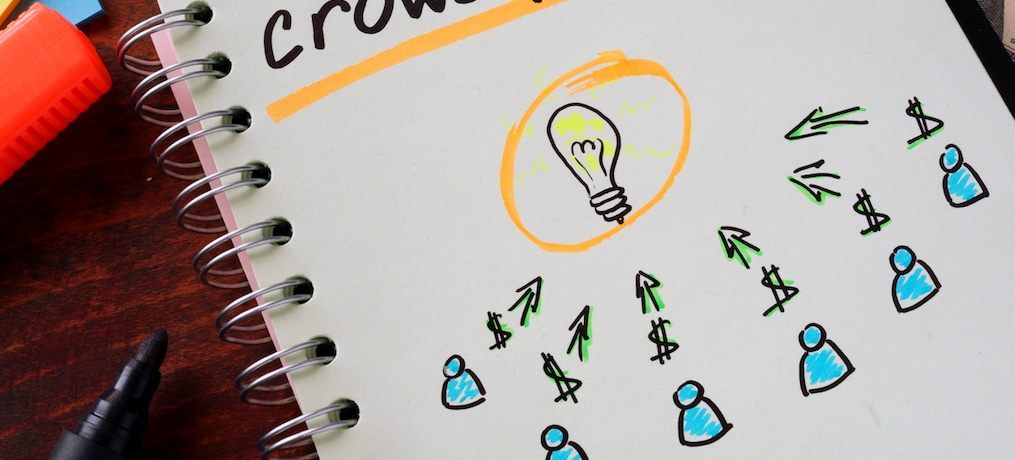 Crow
$
$
$
$
$
$